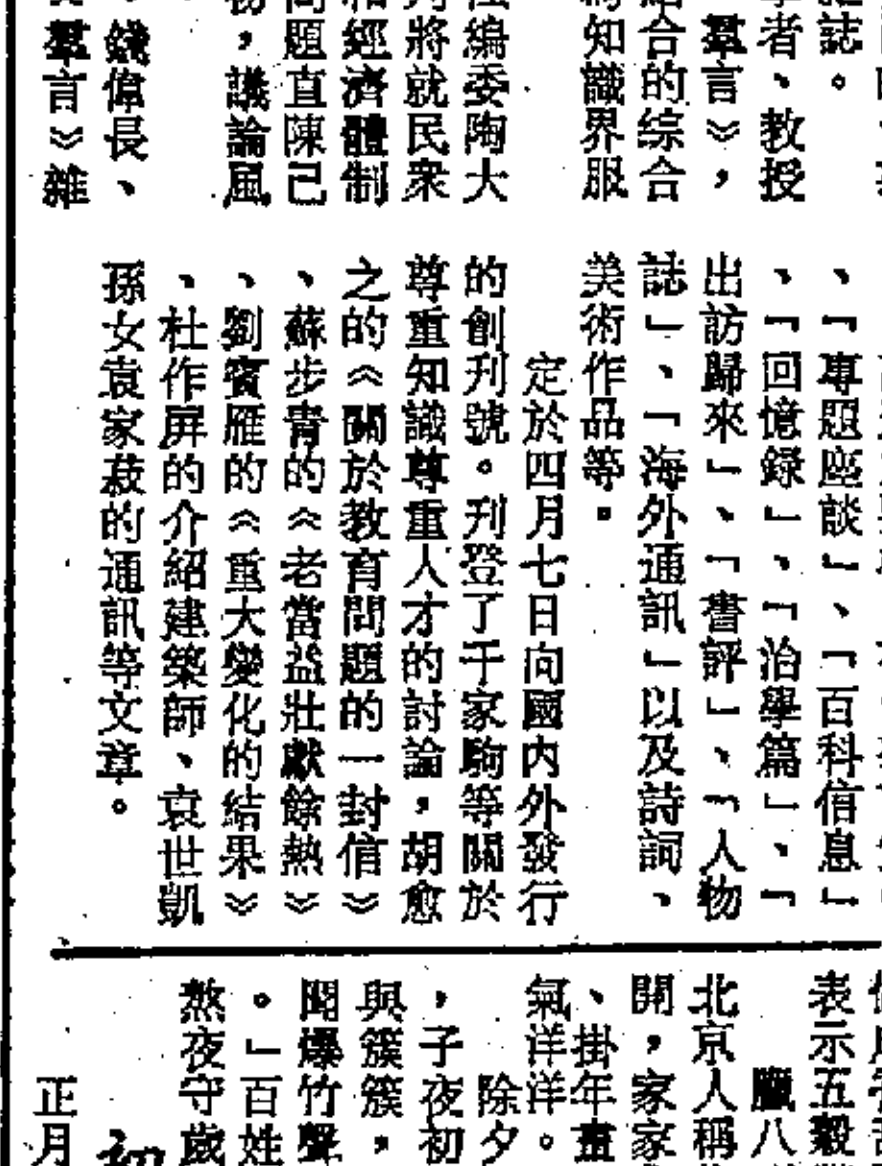 誌。
學者、教授
羣言》，
結合的综合
為知識界服
編委陶大
將就民衆
和經濟體制
問題直陳己
，議論風
、錢偉長、
《羣言》雜
、「專題座談」、「百科信息」
、「回憶録」、「治學篇」、「
出訪歸來」、「書評」、「人物
誌」、「海外通訊」以及詩詞、
美術作品等。
定於四月七日向國内外發行
的創刊號。刊登了千家駒等關於
尊重知識尊重人才的討論，胡愈
之的《關於教育問題的一封信》
、蘇步青的《老當益壯獻餘熱》
、劉賓雁的《重大變化的結果》
、杜作屏的介紹建築師、袁世凱
孫女袁家菽的通訊等文章。
表示五穀
臘八
北京人稱
開，家家
、掛年畫
氣洋洋。
除夕
，子夜初
與簇簇，
聞爆竹聲
。」百姓
熬夜守歲
初
正月